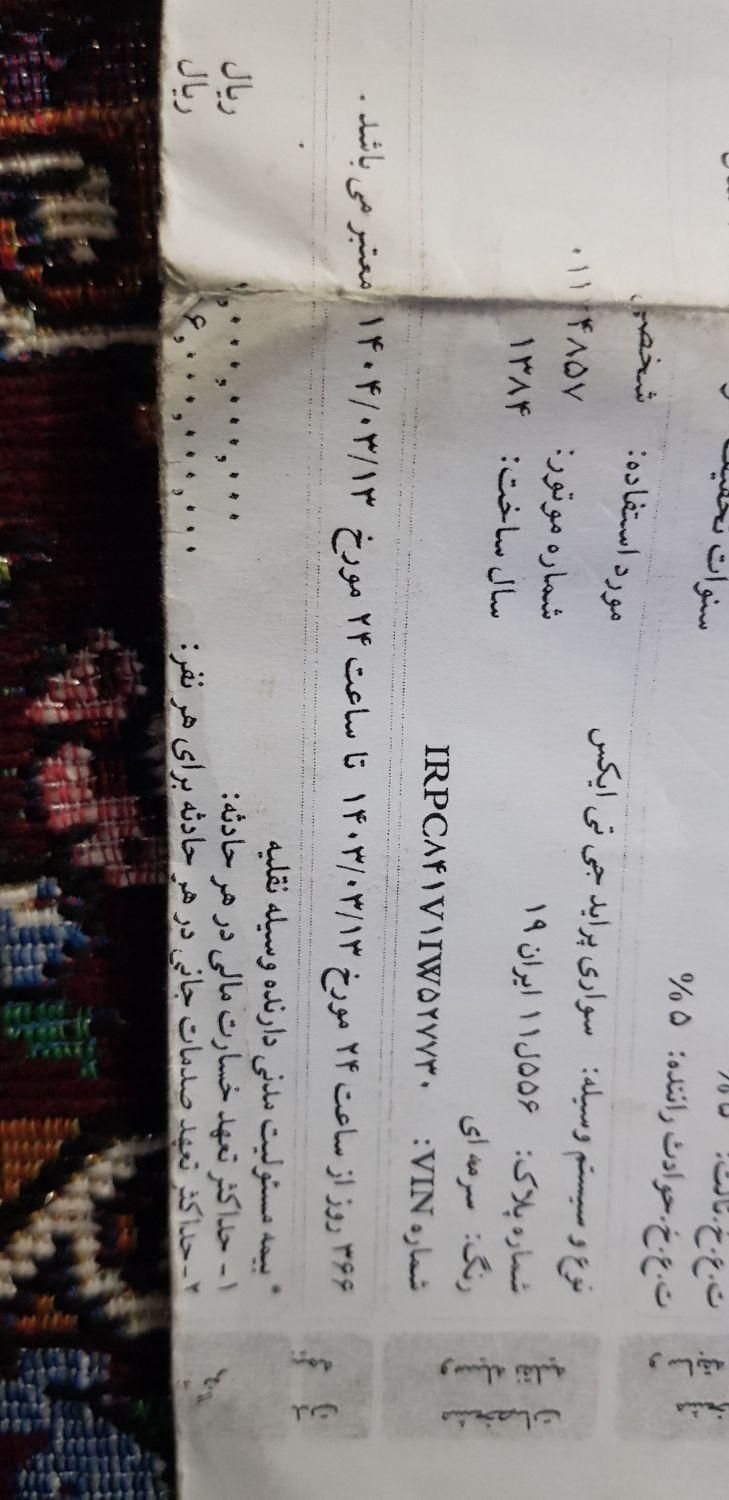 سنوات تخفیف
ت.ع.خ.ثالث: ۵%
ت.ع.خ.حوادث راننده: ۵%
مورد استفاده: شخصی
نوع و سیستم وسیله: سواری پراید جی تی ایکس شماره موتور:
شماره پلاک: ۵۵۶ل۱۱ ایران ۱۹ سال ساخت: ۱۳۸۴
رنگ: سرمه ای
شماره VIN: IRPC۸۴۱V۱IW۵۲۷۷۳۰
۳۶۶ روز از ساعت ۲۴ مورخ ۱۴۰۳/۰۳/۱۳ تا ساعت ۲۴ مورخ ۱۴۰۴/۰۳/۱۳ معتبر می باشد .
* بیمه مسئولیت مدنی دارنده وسیله نقلیه
۱- حداکثر تعهد خسارت مالی در هر حادثه: ریال
۲- حداکثر تعهد صدمات جانی در هر حادثه برای هر نفر: ریال